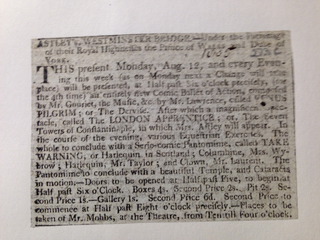 ASTLEY's, WESTMINSTER BRIDGE.—Under the Patronage
of their Royal Highnesses the Prince of WALES and Duke of
YORK.
THIS present Monday, Aug. 12, and every Even-
ing this week (as on Monday next a Change will take
place) will be presented, at Half past Six o'clock precisely, (for
the 4th time) an entirely new Comic Ballet of Action, composed
by Mr. Gouriet, the Music, &c. by Mr. Lawrence, called
PILGRIM; or The Dervise. After which a magnificent spec-
tacle, called The LONDON APPRENTICE; or, The Seven
Towers of Constantinople, in which Mrs. Astley will appear. In
the course of the evening, various Equestrian Exercises. The
whole to conclude with a Serio-comic Pantomime, called TAKE
WARNING, or Harlequin in Scotland; Columbine, Mrs. Wy-
brow; Harlequin, Mr. Taylor; and Clown, Mr. Laurent. The
Pantomime to conclude with a beautiful Temple, and Cataracts
in motion.—Doors to be opened at Half past Five, to begin at
Half past Six o'Clock. Boxes 4s. Second Price 2s. Pit 2s. Se-
cond Price 1s.—Gallery 1s. Second Price 6d. Second Price to
commence at Half past Eight o'clock precisely.—Places to be
taken of Mr. Mobbs, at the Theatre, from Ten till Four o'clock.